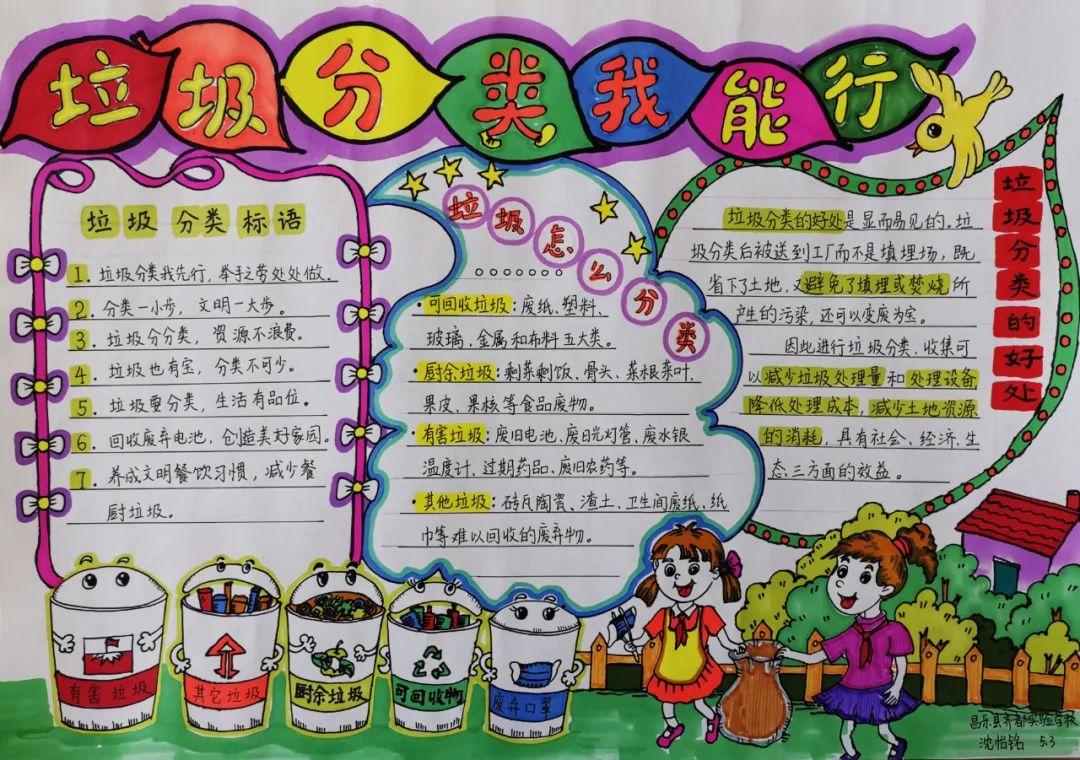 垃圾分类我能行
垃圾分类标语
1. 垃圾分类我先行，举手之劳处处做.
2. 分类一小步，文明一大步。
3. 垃圾分分类，资源不浪费。
4. 垃圾也有宝，分类不可少。
5. 垃圾要分类，生活有品位。
6. 回收废弃电池，创造美好家园。
7. 养成文明餐饮习惯，减少餐
厨垃圾。
垃圾怎么分类
·可回收垃圾：废纸、塑料、
玻璃、金属和布料五大类。
·厨余垃圾：剩菜剩饭、骨头、菜根菜叶、
果皮、果核等食品废物。
·有害垃圾：废旧电池、废日光灯管、废水银
温度计、过期药品、废旧农药等。
·其他垃圾：砖瓦陶瓷、渣土、卫生间废纸、纸
巾等难以回收的废弃物。
垃圾分类的好处
垃圾分类的好处是显而易见的。垃
圾分类后被送到工厂而不是填埋场，既
省下了土地，又避免了填埋或焚烧所
产生的污染，还可以变废为宝。
因此进行垃圾分类、收集可
以减少垃圾处理量和处理设备，
降低处理成本，减少土地资源
的消耗，具有社会、经济、生
态三方面的效益。
有害垃圾
其它垃圾
厨余垃圾
可回收物
废弃口罩
昌乐县齐都实验学校
沈怡铭 5.3